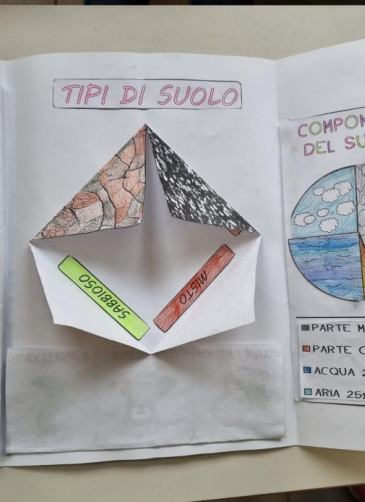 TIPI DI SUOLO
SABBIOSO
MISTO
COMPON
DEL SU
PARTE M
PARTE O
ACQUA 2
ARIA 25